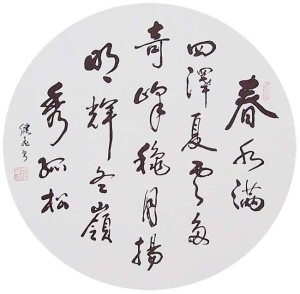 春水滿
四澤夏雲多
奇峰穐月揚
明輝冬嶺
秀孤松